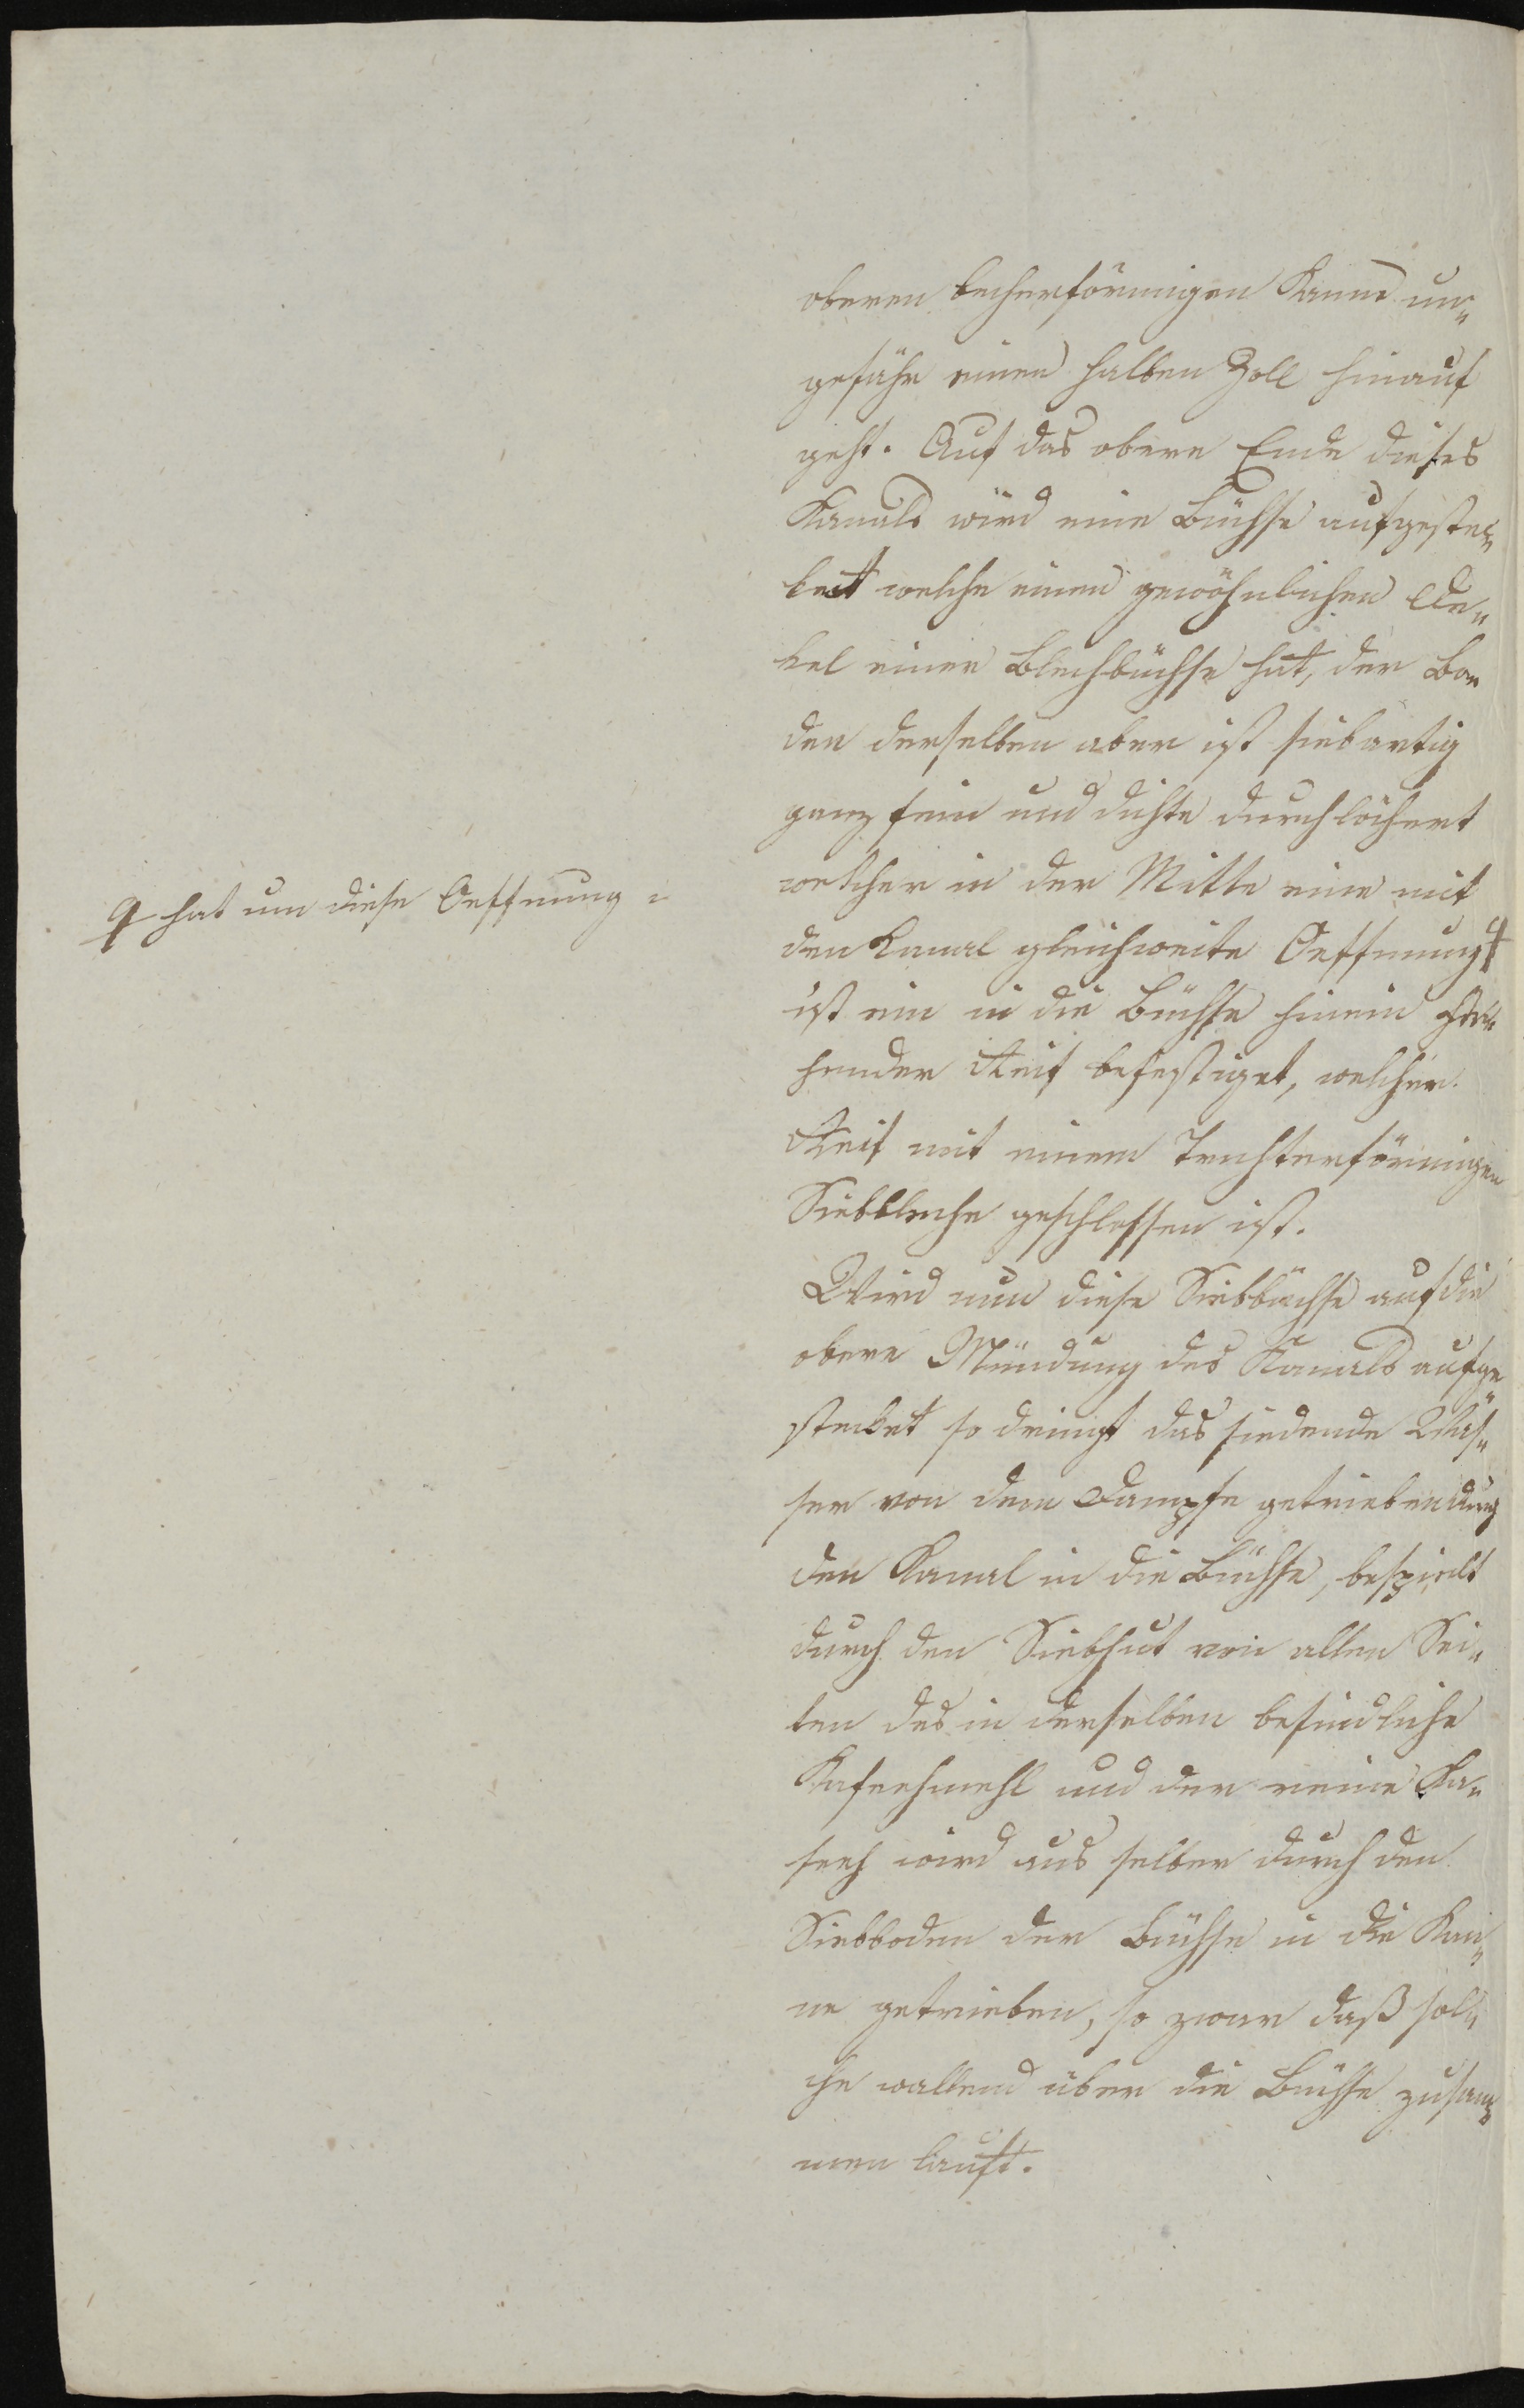 oberen becherförmigen Kanne un„
gefähr einen halben Zoll hinauf
geht. Auf das obere Ende dieses
Kanals wird eine Büchse aufgeste„
ket welche einen gewöhnlichen De„
kel einer Blechbüchse hat, der Bo„
den derselben aber ist siebartig
ganz fein und dichte durchlöchert
welcher in der Mitte eine mit
den Kanal gleichweite Oeffnung
hat um diese Oeffnung
ist ein in die Büchse hinein ste„
hender Reif befestiget, welcher
Reif mit einem Trichterförmigen
Siebbleche geschlossen ist.
Wird nun diese Siebbüchse auf die
obere Mündung des Kanals aufge„
steket so dringt das siedende Was„
ser von dem Dampfe getrieben durch
den Kanal in die Büchse, bespielt
durch den Siebhut von allen Sei„
ten das in derselben befindliche
Kafeehmehl und der reine Ka„
feeh wird aus selber durch den
Siebboden der Büchse in die Kan„
ne getrieben, so zwar daß sol„
che wallend über die Büchse zusam„
men lauft.